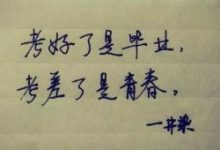 考好了是毕业，
考差了是青春。
一井染